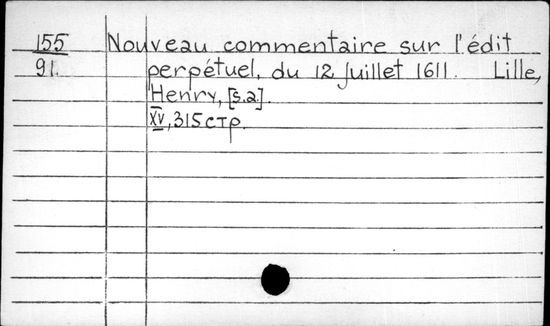 155 Nouveau commentaire sur l'édit
91. perpétuel, du 12 juillet 1611. Lille,
Henry, [s.a.].
XV, 315 стр.